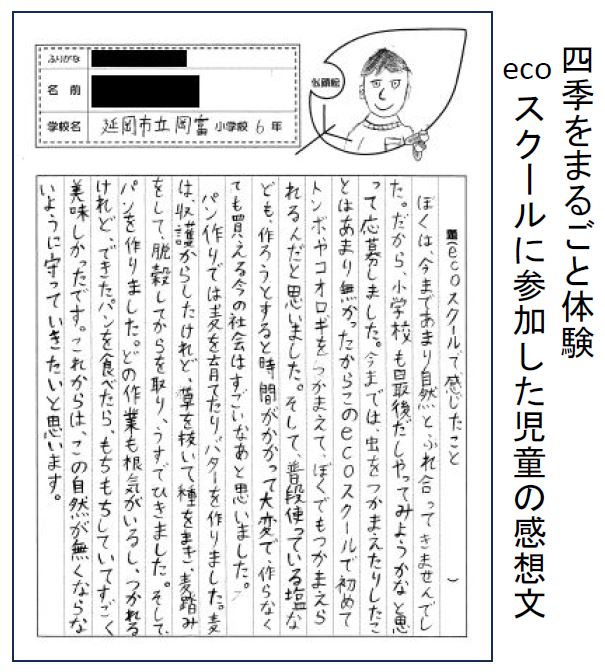 四季をまるごと体験
ecoスクールに参加した児童の感想文
ふりがな
名前
学校名 延岡市立岡富小学校 6年
似顔絵
題(ecoスクールで感じたこと)
ぼくは、今まであまり自然とふれ合ってきませんでし
た。だから、小学校も最後だしやってみようかなと思
って応募しました。今までは、虫をつかまえたりしたこ
とはあまり無かったからこのecoスクールで初めて
トンボやコオロギをつかまえて、ぼくでもつかまえら
れるんだと思いました。そして、普段使っている塩な
ども、作ろうとすると時間がかかって大変で、作らなく
ても買える今の社会はすごいなあと思いました。
パン作りでは麦を育てたりバターを作りました。麦
は、収護からしたけれど、草を抜いて種をまき、麦踏み
をして、脱穀してからを取り、うすでひきました。そして
パンを作りました。どの作業も根気がいるし、つかれる
けれど、できたパンを食べたら、もちもちしていてすごく
美味しかったです。これからは、この自然が無くならな
いように守っていきたいと思います。